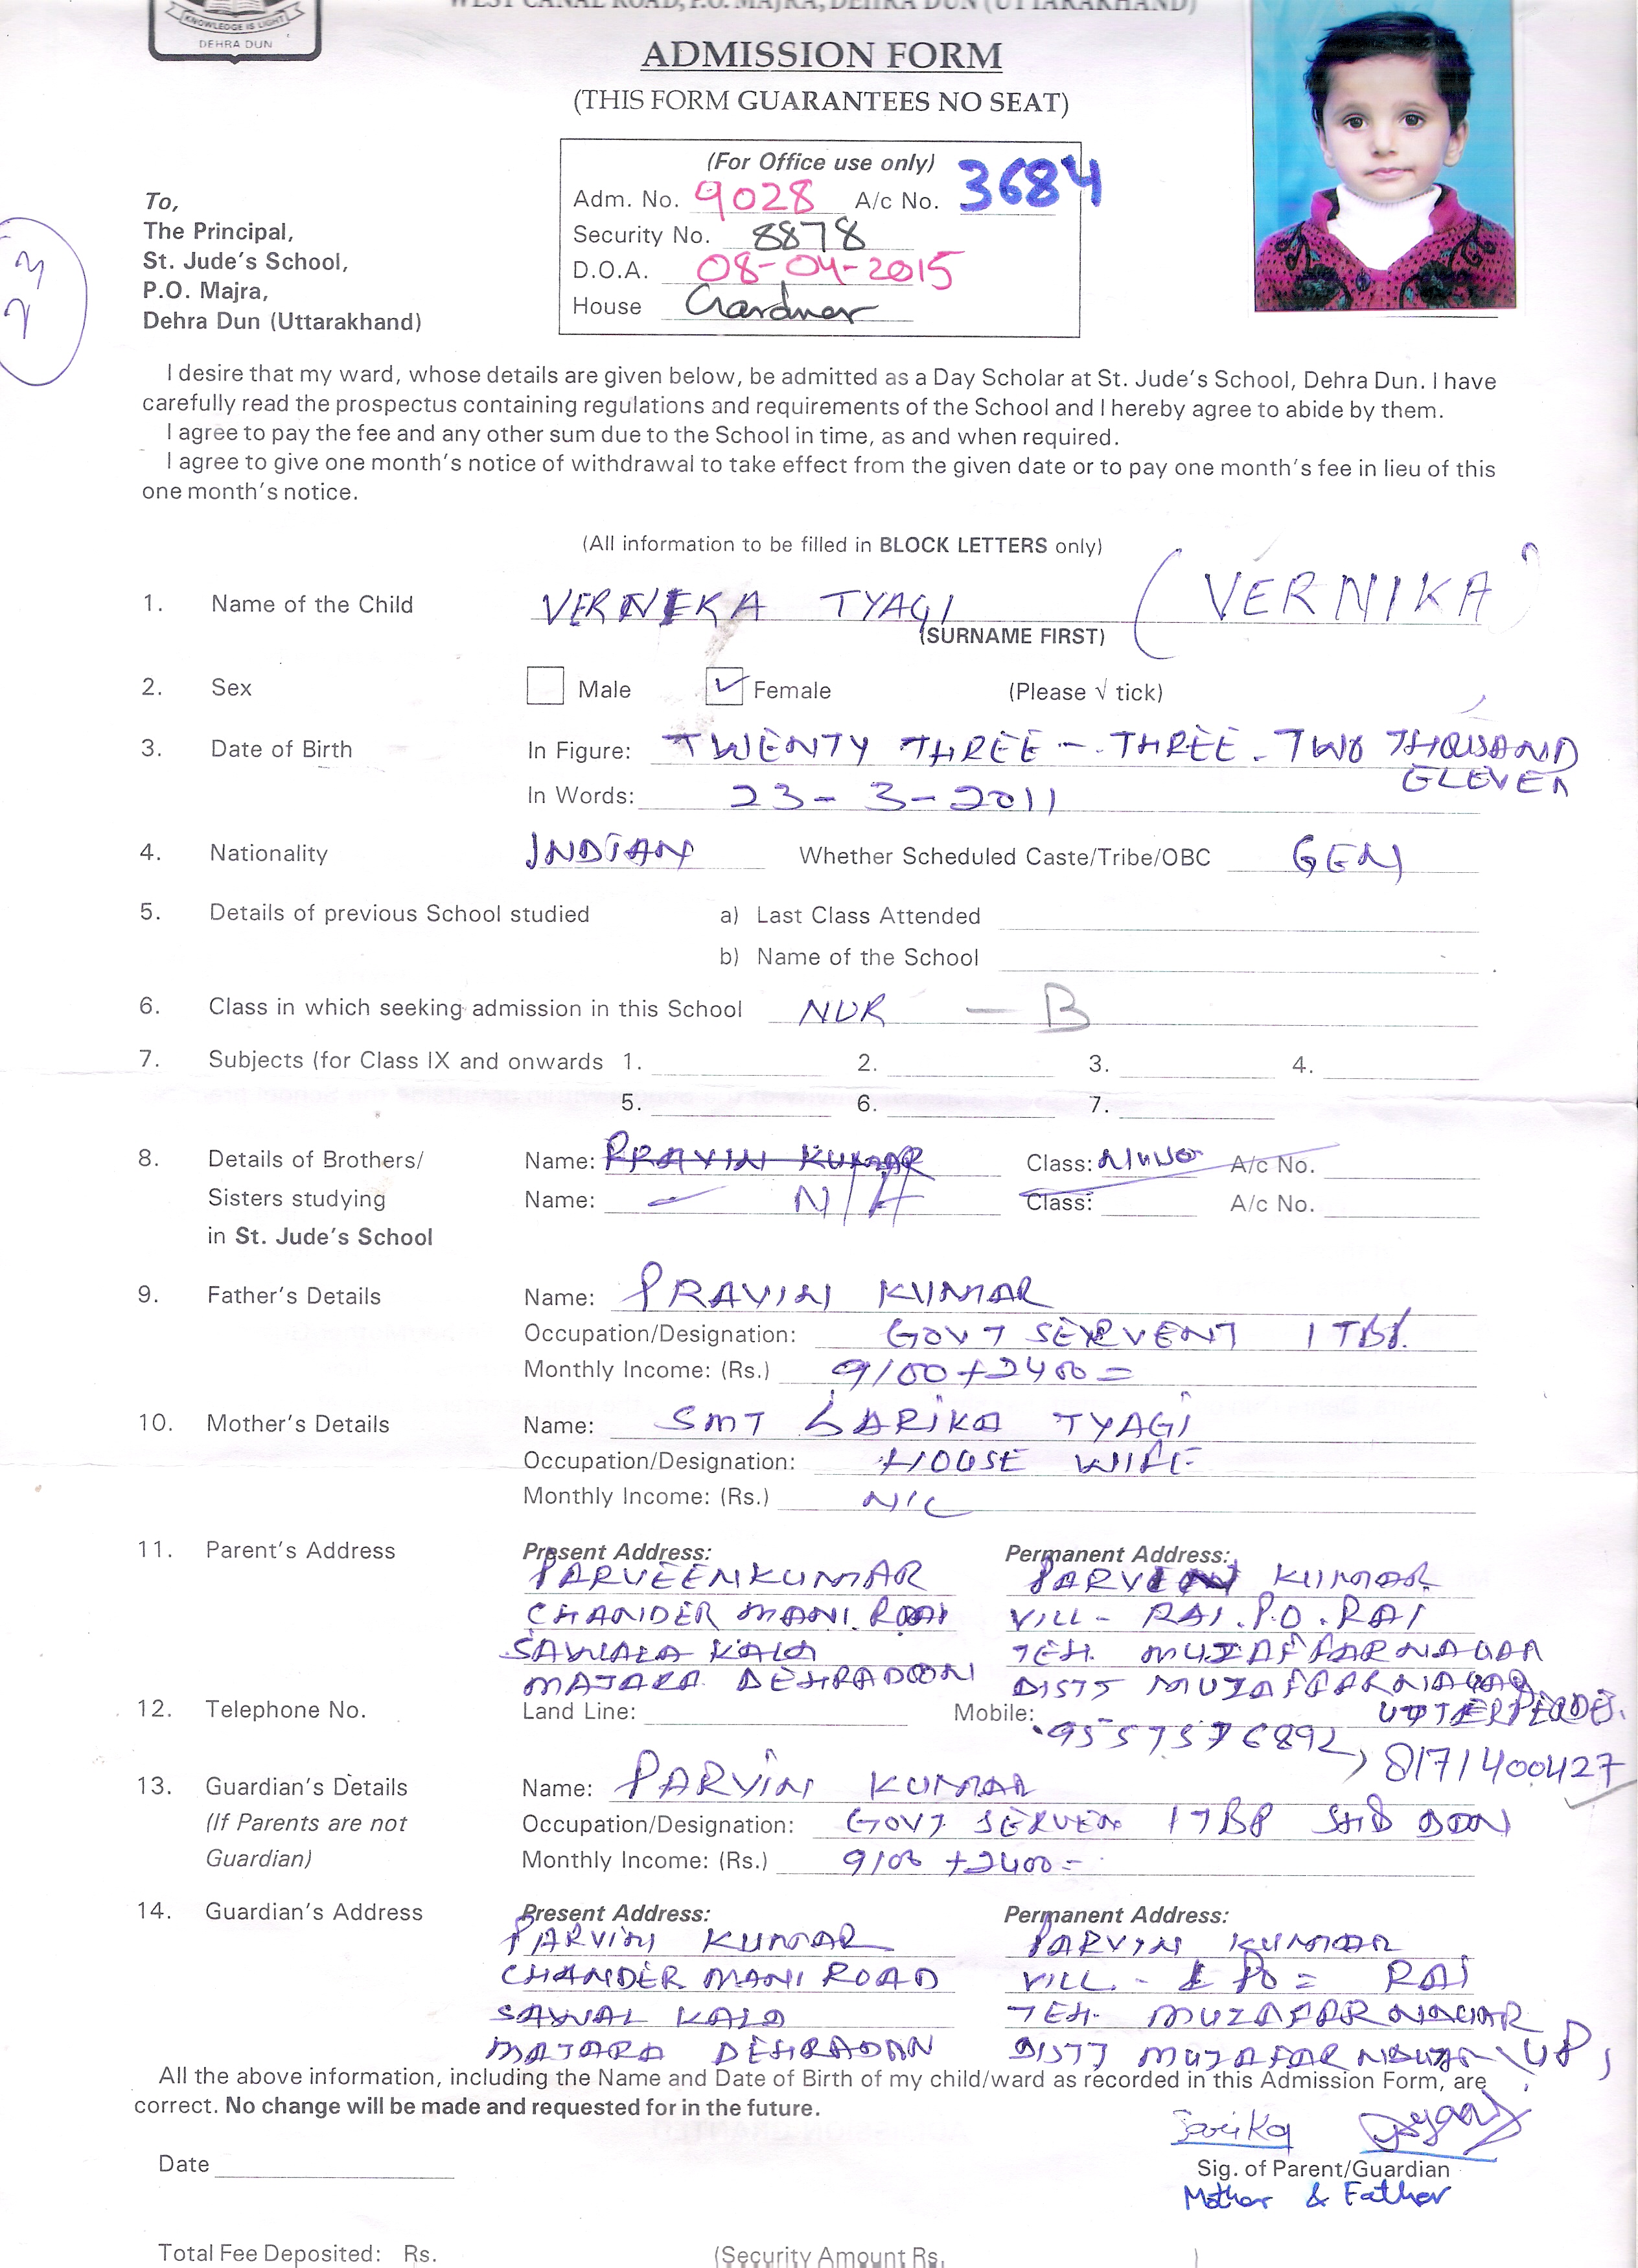 WEST CANAL ROAD, P.O. MAJRA, DEHRA DUN (UTTARAKHAND)
KNOWLEDGE IS LIGHT
DEHRA DUN
ADMISSION FORM
(THIS FORM GUARANTEES NO SEAT)
(For Office use only)
Adm. No. 9028 A/c No. 3684
Security No. 8878
D.O.A. 08-04-2015
House Gardner
To,
The Principal,
St. Jude's School,
P.O. Majra,
Dehra Dun (Uttarakhand)
I desire that my ward, whose details are given below, be admitted as a Day Scholar at St. Jude's School, Dehra Dun. I have
carefully read the prospectus containing regulations and requirements of the School and I hereby agree to abide by them.
I agree to pay the fee and any other sum due to the School in time, as and when required.
I agree to give one month's notice of withdrawal to take effect from the given date or to pay one month's fee in lieu of this
one month's notice.
(All information to be filled in BLOCK LETTERS only)
1. Name of the Child VERNEKA TYAGI (VERNIKA)
(SURNAME FIRST)
2. Sex Male ✓ Female (Please √ tick)
3. Date of Birth In Figure: TWENTY THREE - THREE - TWO THOUSAND
ELEVEN
In Words: 23-3-2011
4. Nationality INDIAN Whether Scheduled Caste/Tribe/OBC GEN
5. Details of previous School studied a) Last Class Attended
b) Name of the School
6. Class in which seeking admission in this School NUR - B
7. Subjects (for Class IX and onwards 1. 2. 3. 4.
5. 6. 7.
8. Details of Brothers/ Name: PRAVIN KUMAR Class: A/c No.
Sisters studying Name: - N/A Class: A/c No.
in St. Jude's School
9. Father's Details Name: PRAVIN KUMAR
Occupation/Designation: GOVT SERVENT ITBP.
Monthly Income: (Rs.) 9100+2400=
10. Mother's Details Name: SMT SARIKA TYAGI
Occupation/Designation: HOUSE WIFE
Monthly Income: (Rs.) NIL
11. Parent's Address Present Address: Permanent Address:
PARVEEN KUMAR PARVIN KUMAR
CHANDER MANI ROAD VILL - RAI. P.O. RAI
SAWALA KALA TEH. MUZAFFARNAGAR
MAJARA DEHRADOON DISTT MUZAFFARNAGAR
12. Telephone No. Land Line: Mobile: 9557576892, 8171400427
13. Guardian's Details Name: PARVIN KUMAR
(If Parents are not Occupation/Designation: GOVT. SERVEN ITBP
Guardian) Monthly Income: (Rs.) 9100 +2400=
14. Guardian's Address Present Address: Permanent Address:
PARVIN KUMAR PARVIN KUMAR
CHANDER MANI ROAD VILL. - & PO = RAI
SAWAL KALA TEH. MUZAFARNAGAR
MAJARA DEHRADAN DISTT UP,
All the above information, including the Name and Date of Birth of my child/ward as recorded in this Admission Form, are
correct. No change will be made and requested for in the future.
Sarika
Date Sig. of Parent/Guardian
Mother & Father
Total Fee Deposited: Rs. (Security Amount Rs. )